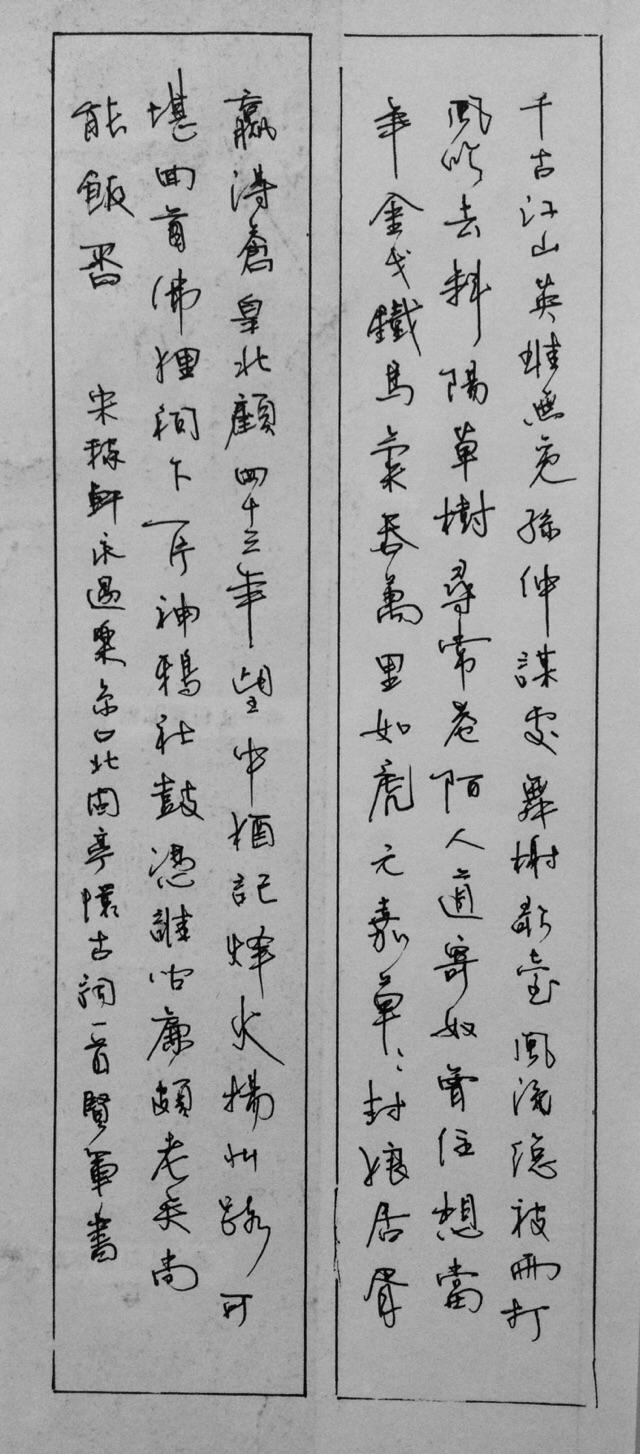 千古江山英雄無覓孫仲謀處舞榭歌臺風流總被雨打
風吹去斜陽草樹尋常巷陌人道寄奴曾住想當
年金戈鐵馬氣吞萬里如虎元嘉草〻封狼居胥
贏得倉皇北顧四十三年望中猶記烽火揚州路可
堪回首佛狸祠下一片神鴉社鼓憑誰問廉頗老矣尚
能飯否 宋稼軒永遇樂京口北固亭懷古詞一首賢軍書